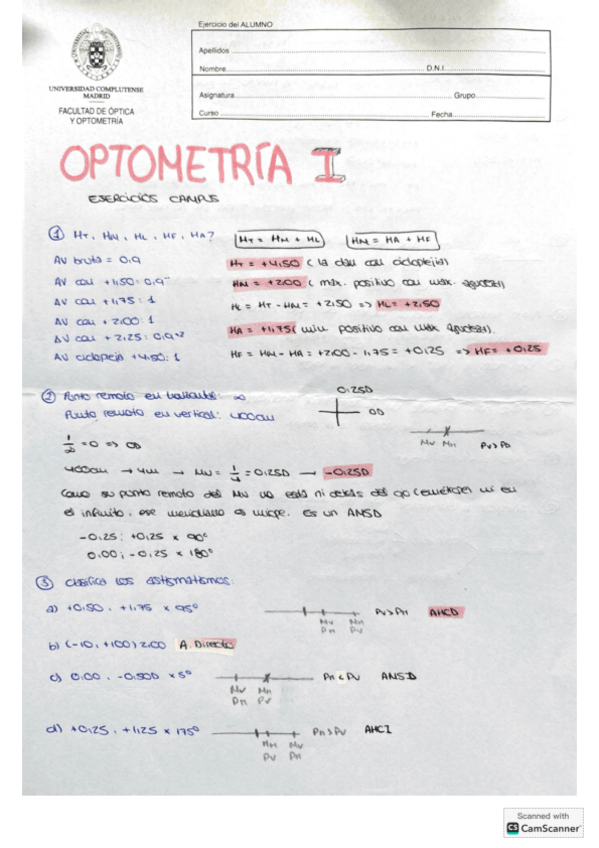 Ejercicio del ALUMNO
Apellidos
Nombre D.N.I.
Asignatura Grupo
Curso Fecha
UNIVERSIDAD COMPLUTENSE
MADRID
FACULTAD DE ÓPTICA
Y OPTOMETRÍA
OPTOMETRÍA I
EJERCICIOS CAMPUS
① HT, HM, HL, HF, HA? HT = HM + HL HM = HA + HF
AV bruta = 0,9 HT = +4,50 (la dan con cicloplejia)
AV con +1,50: 0,9⁻ HM = +2,00 (máx. positivo con máx. agudeza)
AV con +1,75: 1 HL = HT - HM = +2,50 => HL = +2,50
AV con +2,00: 1 HA = +1,75 (mín positivo con máx agudeza).
AV con +2,25: 0,9⁺²
AV cicloplejia +4,50: 1 HF = HM - HA = +2,00 - 1,75 = +0,25 => HF = +0,25
② Punto remoto en horizontal: ∞ 0,25D
Punto remoto en vertical: 400cm 0D
1/∞ = 0 => 0D Mv Mh Pv>Ph
400cm → 4m → Mv = 1/4 = 0,25D → -0,25D
Como su punto remoto del Mv no está ni detrás del ojo (emétrope) ni en
el infinito, ese meridiano es miope. Es un ANSD
-0,25: +0,25 x 90º
0,00: -0,25 x 180º
③ Clasifica los astigmatismos:
a) +0,50, +1,75 x 95º Mv Mh Ph Pv Pv>Ph AHCD
b) (-10, +100) 2,00 A. Directo
c) 0,00, -0,50D x 5º Mv Mh Ph Pv Ph<Pv ANSD
d) +0,25, +1,25 x 175º Mh Mv Pv Ph Ph>Pv AHCI
Scanned with
CS CamScanner